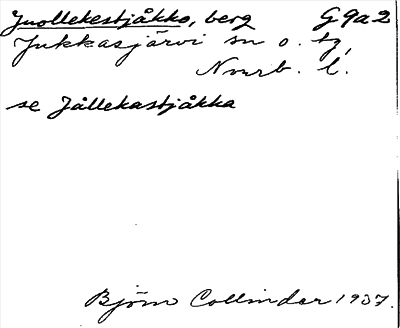 Juollekestjåkko, berg G 9a2
Jukkasjärvi sn o. tg,
Nmrb. l.
se Jållekastjåkka
Björn Collinder 1937.